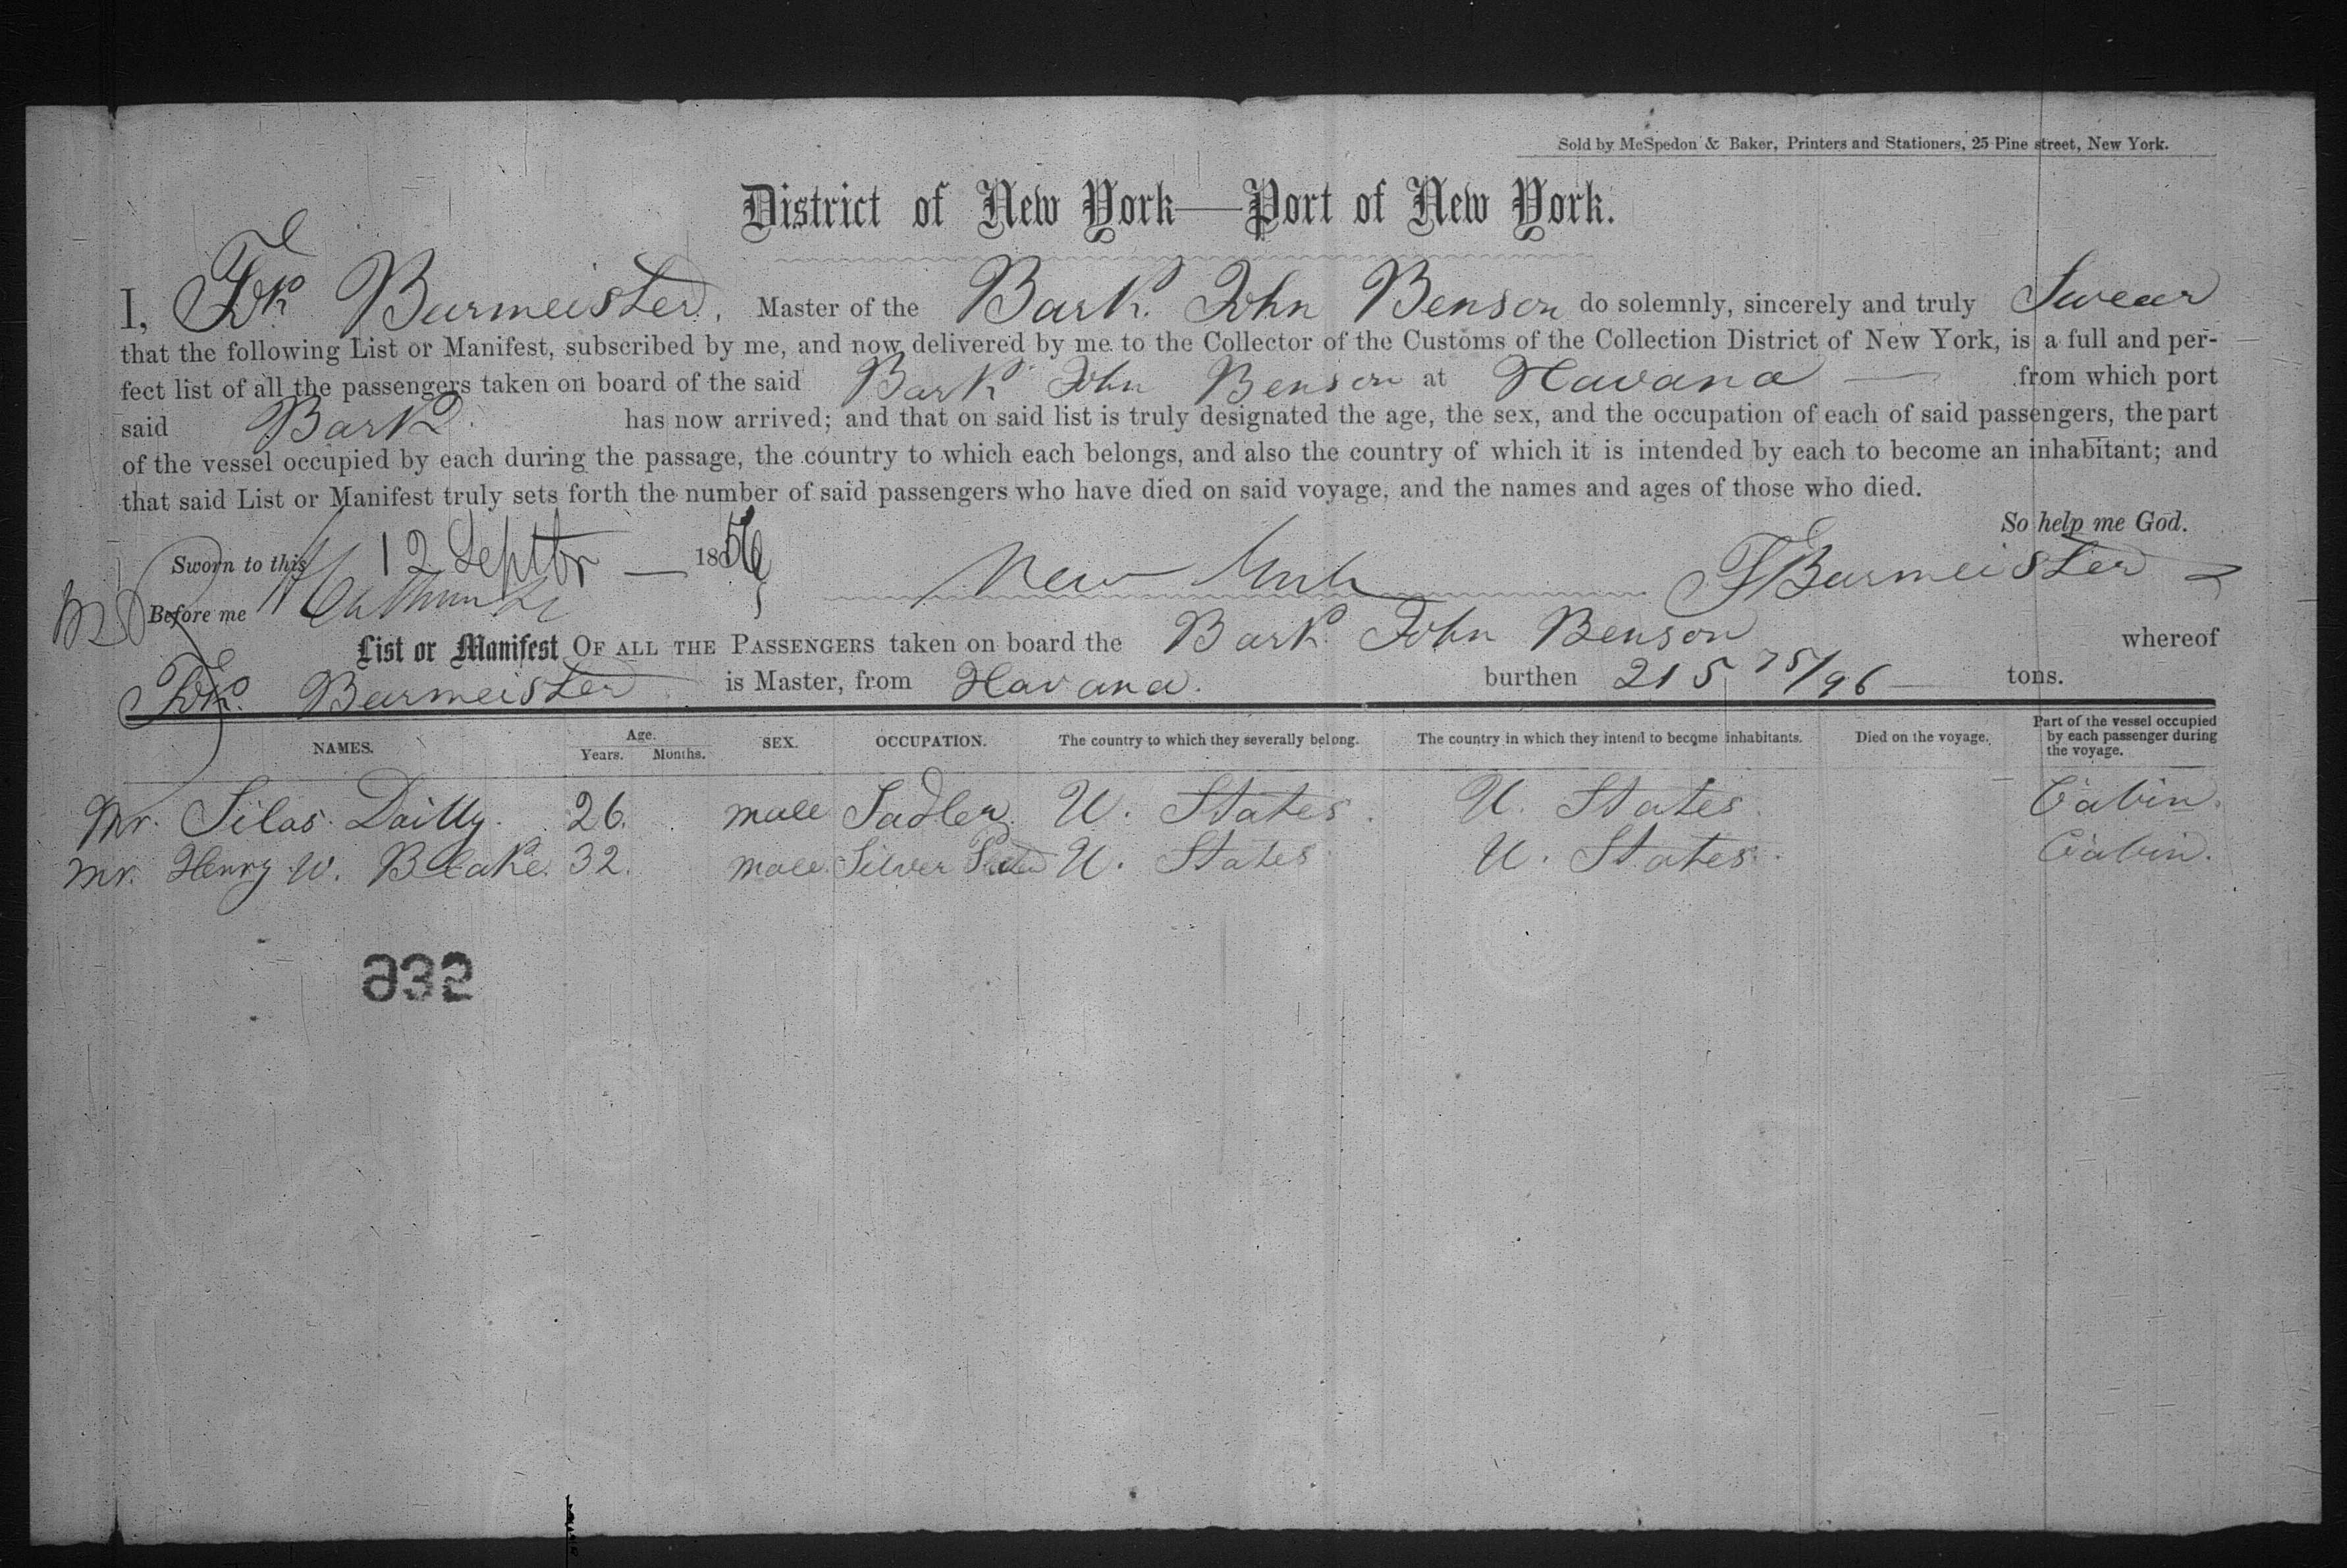 Sold by McSpedon & Baker, Printers and Stationers, 25 Pine street, New York.
District of New York—Port of New York.
I, Fdk Burmeister, Master of the Bark John Benson do solemnly, sincerely and truly Swear
that the following List or Manifest, subscribed by me, and now delivered by me to the Collector of the Customs of the Collection District of New York, is a full and per-
fect list of all the passengers taken on board of the said Bark John Benson at Havana — from which port
said Bark has now arrived; and that on said list is truly designated the age, the sex, and the occupation of each of said passengers, the part
of the vessel occupied by each during the passage, the country to which each belongs, and also the country of which it is intended by each to become an inhabitant; and
that said List or Manifest truly sets forth the number of said passengers who have died on said voyage, and the names and ages of those who died.
So help me God.
Sworn to this 12 Septbr — 1856 New York F Burmeister
Before me
List or Manifest OF ALL THE PASSENGERS taken on board the Bark John Benson whereof
Fdk. Burmeister is Master, from Havana. burthen 215 75/96 tons.
NAMES. Age. Years. Months. SEX. OCCUPATION. The country to which they severally belong. The country in which they intend to become inhabitants. Died on the voyage. Part of the vessel occupied by each passenger during the voyage.
Mr. Silas Dailly. 26. male Sadler. U. States. U. States. Cabin.
Mr. Henry W. Blake. 32. male Silver U. States. U. States. Cabin.
932